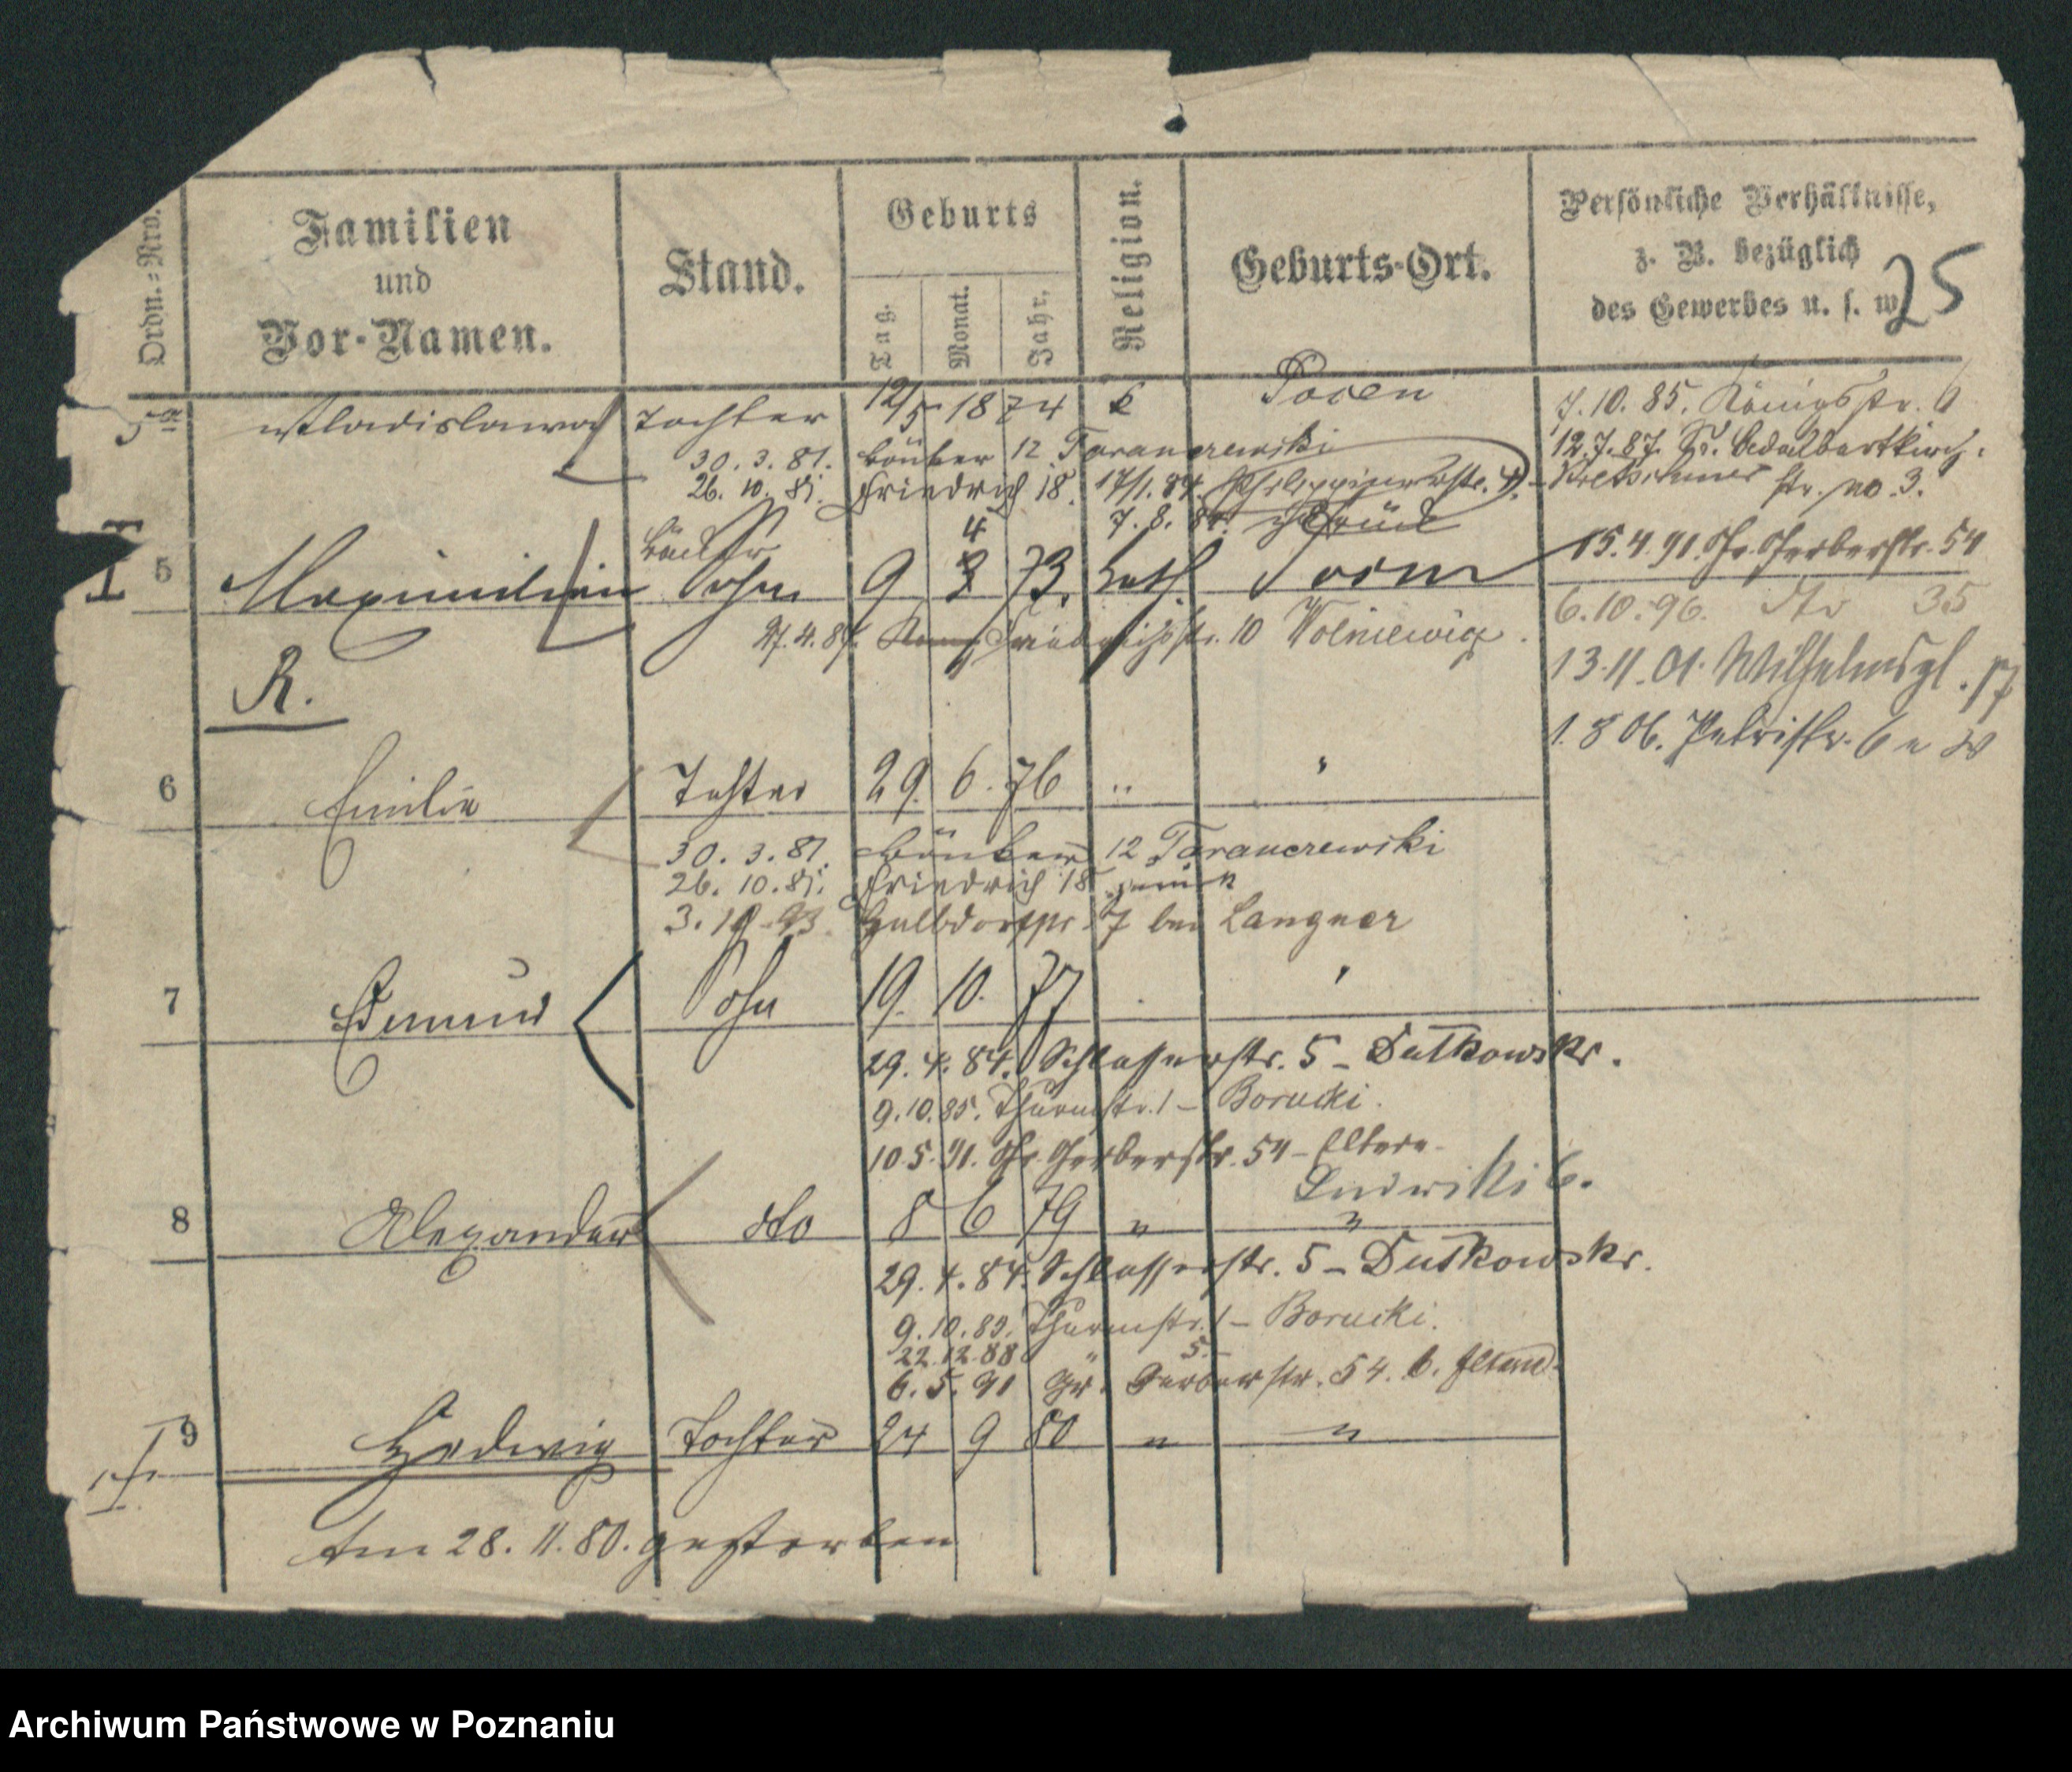 Ordn.=Nro.
Familien
und
Vor-Namen.
Stand.
Geburts
Tag.
Monat.
Jahr.
Religion.
Geburts-Ort.
Persönliche Verhältnisse,
z. B. bezüglich
des Gewerbes u. s. w.
25
5a Wladislawa Tochter 12/5 1874 k Posen
30. 3. 81. 12 Taranczewski
26. 10. 81. Friedrich 18. 17/1. 84.
7. 8. 84. zurück
7.10.85. Königsstr. 6
12.7.87.
str. no. 3.
15.4.91. Gr. Gerberstr. 54
6.10.96. dto 35
13.11.01. Wilhelmspl. 17
1.8 06. Petristr. 6
5 Maximilian Sohn 9 4 3 73. kath. Posen
27.4.87. Friedrichstr. 10 Wolniewicz.
R.
6 Emilie Tochter 29. 6. 76 "
30. 3. 81. 12 Taranczewski
26. 10. 81. Friedrich 18 zurück
3. 10. 93. Halbdorfstr. 7 bei Langner
7 Edmund Sohn 19. 10. 77
29. 4. 84. Schlosserstr. 5 – Dutkowski.
9.10.85. Thurmstr. 1 – Borucki.
10.5.91. Gr. Gerberstr. 54 – Eltern.
8 Alexander dto 8 6 79 " "
29. 4. 84. Schlosserstr. 5 – Dutkowski.
9.10.85. Thurmstr. 1 – Borucki.
22.12.88 " 5.
6. 5. 91 Gr. Gerberstr. 54. b. Eltern.
9 Hedwig Tochter 24 9 80 " "
Am 28. 11. 80. gestorben
Archiwum Państwowe w Poznaniu